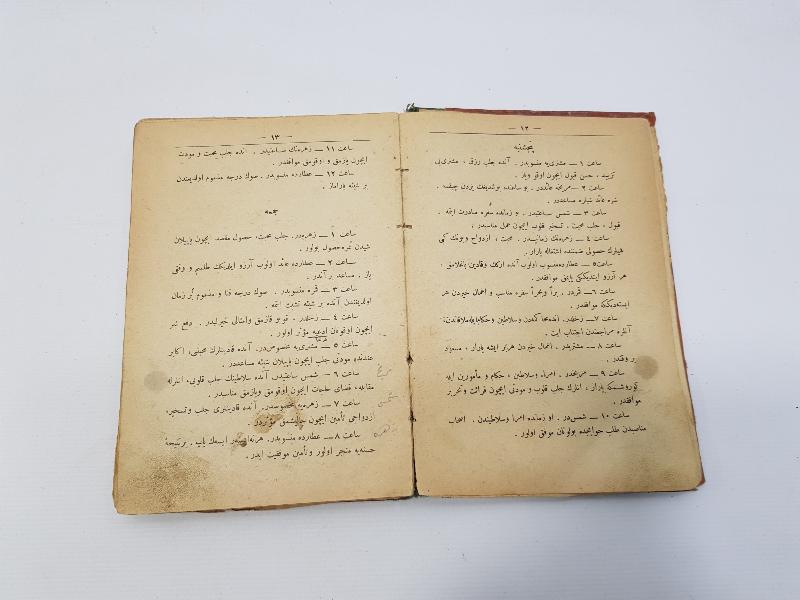 — ١٢ —
پنجشنبه
ساعت ١ — مشتری‌یه منسوبدر . آنده جلب رزق ، مشتری‌یی
تزیید ، حسن قبول ایچون اوقو ویاز .
ساعت ٢ — مریخه عائددر . بو ساعتده
شره عائد شیلره مساعددر .
ساعت ٣ — شمس ساعتیدر . بو زمانده سفره مبادرت ایتمه .
قبول ، جلب محبت ، تسخیر قلوب ایچون عمل مناسبدر .
ساعت ٤ — زهره‌نك زمانیدر . محبت ، ازدواج وبونك كی
شیلرك حصولی ضمننده اشتغاله یارار .
ساعت ٥ — عطارده منسوب اولوب آنده ارکك وقادین باغلامق ،
هر آرزو ایتدیکنی یاپمق موافقدر .
ساعت ٦ — قمردر . براً وبحراً سفره مناسب و اعمال خیردن هر
ایستدیکك موافقدر .
ساعت ٧ — زحلدر . آنده محاکمه‌دن وسلاطین وحکام ایله ملاقاتدن،
آنلره مراجعتدن اجتناب ایت .
ساعت ٨ — مشتریدر . اعمال خیردن هر بر ایشه یارار ، مسعود
بر وقتدر .
ساعت ٩ — مریخدر . امرا، وسلاطین ، حکام و مأمورین ایله
کوروشمکه یارار ، آنلرك جلب قلوب و مودتی ایچون قرائت وتحریر
موافقدر .
ساعت ١٠ — شمس‌در . او زمانده امرا وسلاطیندن . اصحاب
مناصبدن طلب حوایجده بولونان موفق اولور .
— ١٣ —
ساعت ١١ — زهره‌نك ساعتیدر . آنده جلب محبت و مودت
ایچون یازمق و اوقومق موافقدر .
ساعت ١٢ — عطارده منسوبدر . صوك درجه مذموم اولدیغندن
بر شیئه یاراماز .
جمعه
ساعت ١ — زهره‌در . جلب محبت ، حصول مقصد ایچون یاپیلان
شیدن ثمره حصول بولور .
ساعت ٢ — عطارده عائد اولوب آرزو ایتدیکك طلسم و وفقی
یاز . مساعد بر آندر .
ساعت ٣ — قمره منسوبدر . صوك درجه فنا و مذموم بر زمان
اولدیغندن آنده بر شیئه تشبث ایتمه .
ساعت ٤ — زحلدر ، قویو قازمق وامثالی خیرلیدر . دفع شر
ایچون اوقونان ادعیه مؤثر اولور .
ساعت ٥ — مشتری‌یه مخصوص‌در. آنده قادینلرك محبتی، اکابر
عندنده مودتی جلب ایچون یاپیلان شیئه مساعددر .
ساعت ٦ — شمس ساعتیدر. آنده سلاطینك جلب قلوبی، آنلرله
مقابله، قضای حاجات ایچون اوقومق ویازمق مناسبدر.
ساعت ٧ — زهره‌یه مخصوصدر. آنده قادینلری جلب وتسخیر،
ازدواجی تأمین ایچون چالیشمق مؤثردر .
ساعت ٨ — عطارده منسوبدر. هر نه ایدر ایسه‌ك یاپ . بر نتیجهٔ
حسنه‌یه منجر اولور وتأمین موفقیت ایدر .
مریخ
شمس
زهره